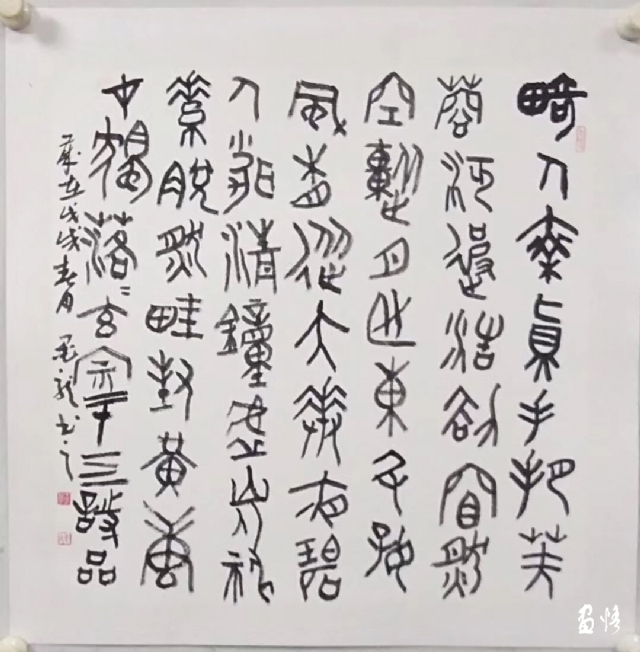 畸人乘真手把芙
蓉泛彼浩劫窅然
空蹤月出東斗好
風相從太華夜碧
人聞清鐘虛佇神
素脫然畦封黃唐
在獨落落玄宗二十四詩品
歲在戊戌春月 書之